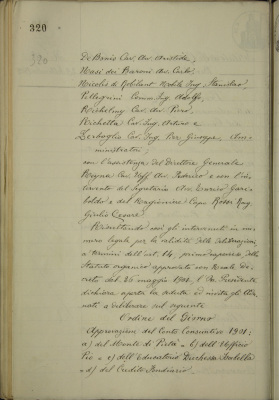 320
De Bono Cav. Avv. Aristide,
Masi dei Baroni Avv. Carlo,
Nicolis di Robilant Nobile Ing. Stanislao,
Pellegrini Comm. Ing. Adolfo,
Cav. Avv. Piero,
Richetta Cav. Ing. Arturo e
Zerboglio Cav. Ing. Pier Giuseppe Am-
ministratori;
con l'assistenza del Direttore Generale
Cav. Uff. Avv. Federico e con l'in-
tervento del Segretario Avv. Gari-
boldi e del Ragioniere Capo Rossi Rag.
Giulio Cesare.
Risultando così gli intervenuti in nu-
mero legale per la validità delle deliberazioni,
a termini dell'art. 14, primo capoverso dello
Statuto organico approvato con Reale De-
creto del 25 maggio 1901. Il Sr. Presidente
dichiara aperta la seduta ed invita gli Adu-
nati a deliberare sul seguente
Ordine del Giorno
Approvazione del Conto Consuntivo 1901:
a) del Monte di Pietà - b) dell'Uffizio
Pio - c) dell'Educatorio Duchessa Isabella
- d) del Credito Fondiario.